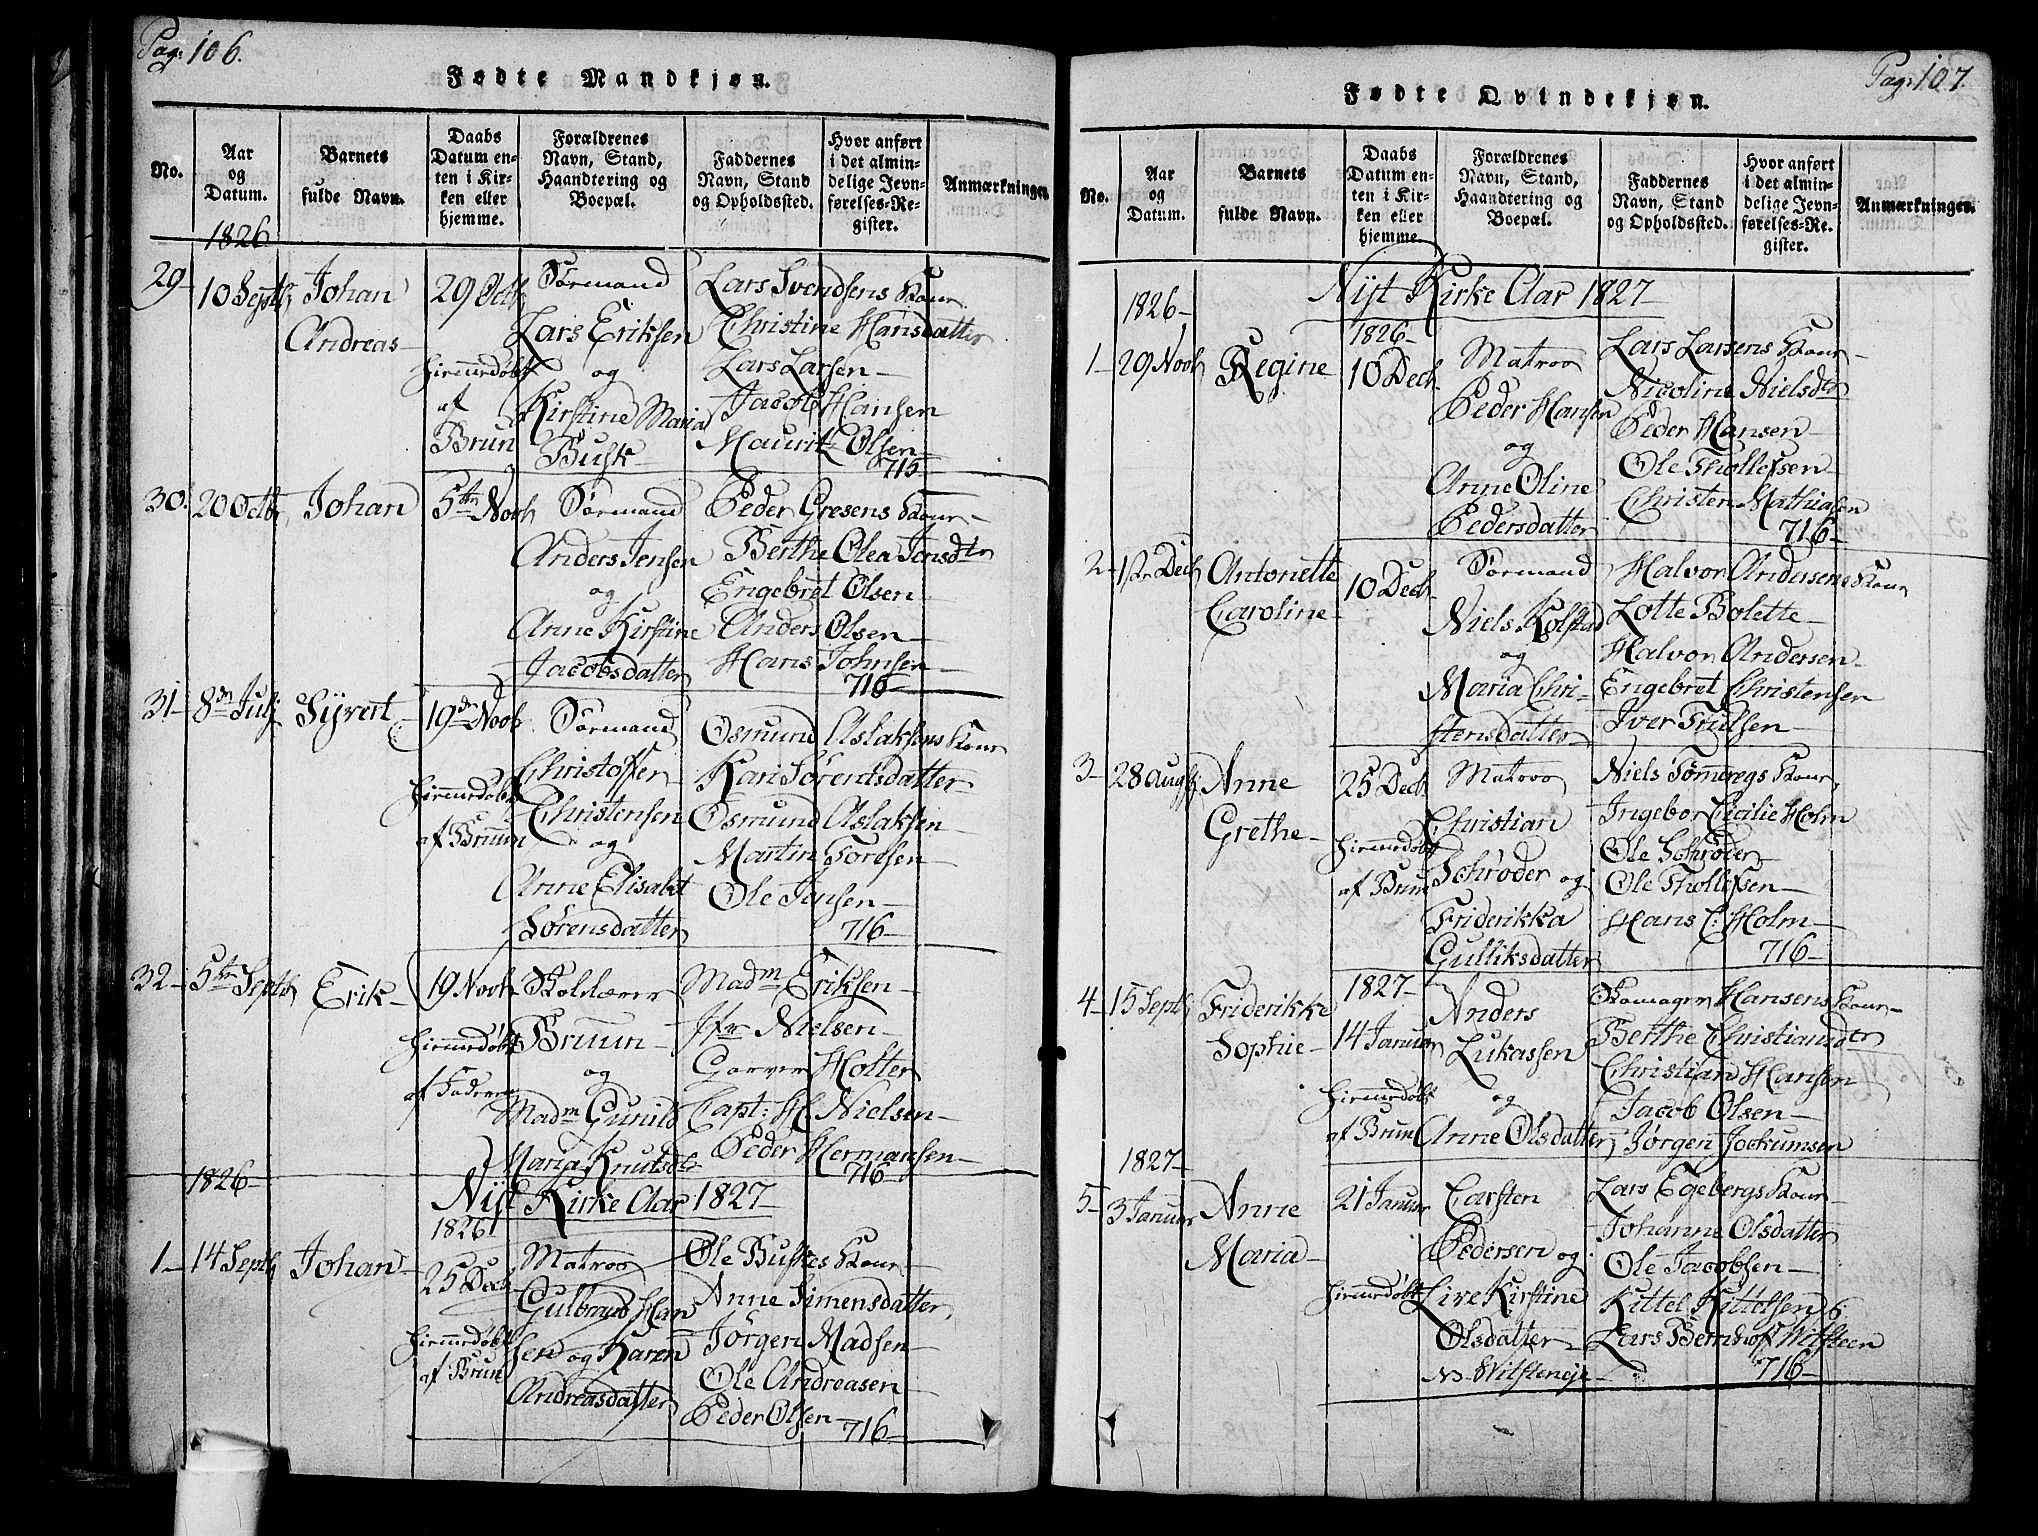 Pag: 106.
Fødte Mandkjøn.
No.
Aar
og
Datum.
Barnets
fulde Navn.
Daabs
Datum en-
ten i Kir-
ken eller
hjemme.
Forældrenes
Navn, Stand,
Haandtering og
Boepæl.
Faddernes
Navn, Stand
og Opholdssted.
Hvor anført
i det almin-
delige Jevn-
førelses-Re-
gister.
Anmærkninger.
1826
29-
10 Septb
Johan
Andreas-
29 Octb
hiemmedøbt
af
Brun
Sørmand
Lars Eriksen
og
Kirstine Maria
Busk-
Lars Svendsens Kone-
Christine Hansdatter
Lars Larsen-
Jacob Hansen
Mauritz Olsen-
715-
30.
20 Octb
Johan
5te Novb
Sørmand
Anders Jensen
og
Anne Kirstine
Jacobsdatter
Peder Gresens Kone-
Berthe Olea Jensdtr
Engebret Olsen-
Anders Olsen-
Hans Johnsen-
716-
31-
8de Julj
Syvert
19de Novb
hiemmedøbt
af Bruun
Sørmand
Christoffer
Christensen
og
Anne Elisabet
Sørensdatter
Osmund Aslaksens Kone
Kari Sørensdatter
Osmund Aslaksen-
Martin Toresen-
Ole Jensen-
716-
32-
5te Septb
Erik-
19 Novb-
hiemmedøbt
af Faderen
Skolelærer
Bruun-
og
Madm Gunild
Maria Knutsdtr
Madm Eriksen-
Jfr Nielsen-
Garver Holter
Capt: H Nielsen-
Peder Hermansen-
716-
1826-
Nyt Kirke Aar 1827
1-
14 Septb
Johan-
1826
25 Decb
hiemmedøbt
af Brun
Matros
Gulbrand Han
sen og Karen
Andreasdatter
Ole Buskes Kone-
Anne Simensdatter
Jørgen Madsen-
Ole Andreasen
Peder Olsen-
716-
Pag: 107.
Fødte Qvindekjøn.
No.
Aar
og
Datum.
Barnets
fulde Navn.
Daabs
Datum en-
ten i Kir-
ken eller
hjemme.
Forældrenes
Navn, Stand,
Haandtering og
Boepæl.
Faddernes
Navn, Stand
og Opholdssted.
Hvor anført
i det almin-
delige Jevn-
førelses-Re-
gister.
Anmærkninger.
Nyt Kirke Aar 1827
1826-
1-
29 Novb
Regine
1826-
10 Decb
Matros
Peder Hansen
og
Anne Oline
Pedersdatter
Lars Larsens Kone-
Nicoline Nielsdtr
Peder Hansen-
Ole Thollefsen-
Christen Mathiasen
716-
2-
12 Decb
Antonette
Caroline-
10 Decb
Sørmand
Niels Kolstad
og
Maria Chri-
stensdatter-
Halvor Andersens Kone
Lotte Bolette-
Halvor Andersen-
Engebret Christensen
Iver Trulsen-
3-
28 Augst
Anne
Grethe-
25 Decb
hiemmedøbt
af Brun
Matros
Christian
Schrøder og
Friderikka
Gulliksdatter
Niels Tømeregs Kone
Ingebor Cicilie Holm
Ole Schrøder-
Ole Thollefsen-
Hans C: Holm-
716-
4-
15 Septb
Friderikke
Sophie-
1827-
14 Januar
hiemmedøbt
af Brun
Anders
Lukassen
og
Anne Olsdatter
Skomager Hansens Kone-
Berthe Christiansdtr
Christian Hansen
Jacob Olsen-
Jørgen Jockumsen
1827-
5-
3 Januar
Anne
Maria-
21 Januar
hiemmedøbt
Carsten
Pedersen og
Live Kirstine
Olsdatter-
Lars Egebergs Kone-
Johanne Olsdatter
Ole Jacobsen-
Kittel Kittelsen
Lars Berndhoft Wilsteen
716-